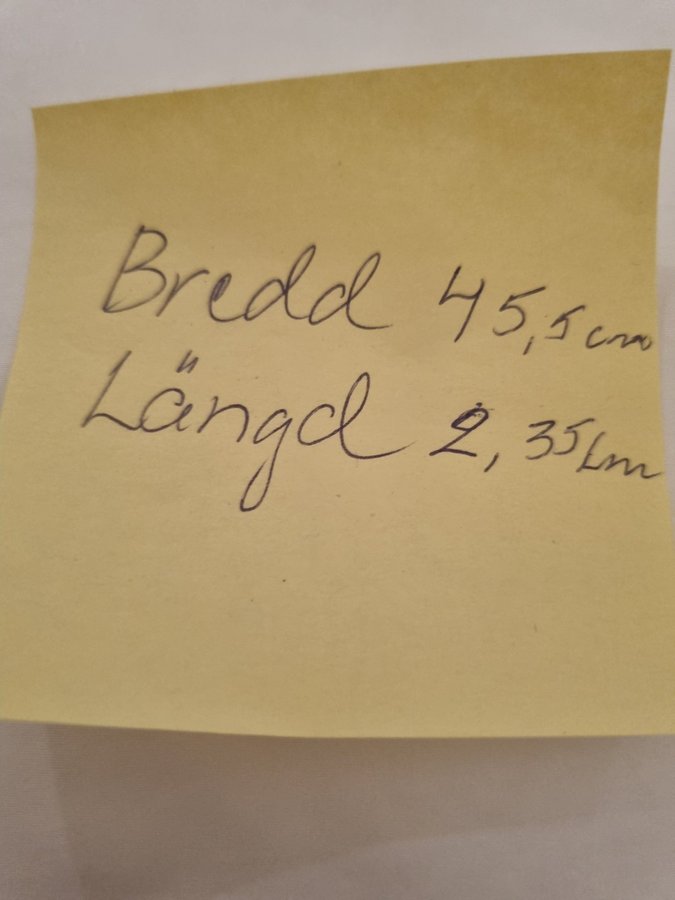 Bredd 45,5 cm
Längd 2,35 cm